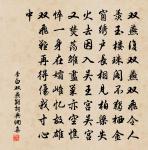 双燕复双燕双飞令人
羡玉楼珠阁不独栖金
窗绣户长相见柏梁失
火去因入吴王宫吴宫
又焚荡雏尽巢亦空憔
悴一身在孀雌忆故雄
双飞难再得伤我寸心
中
李白双燕离